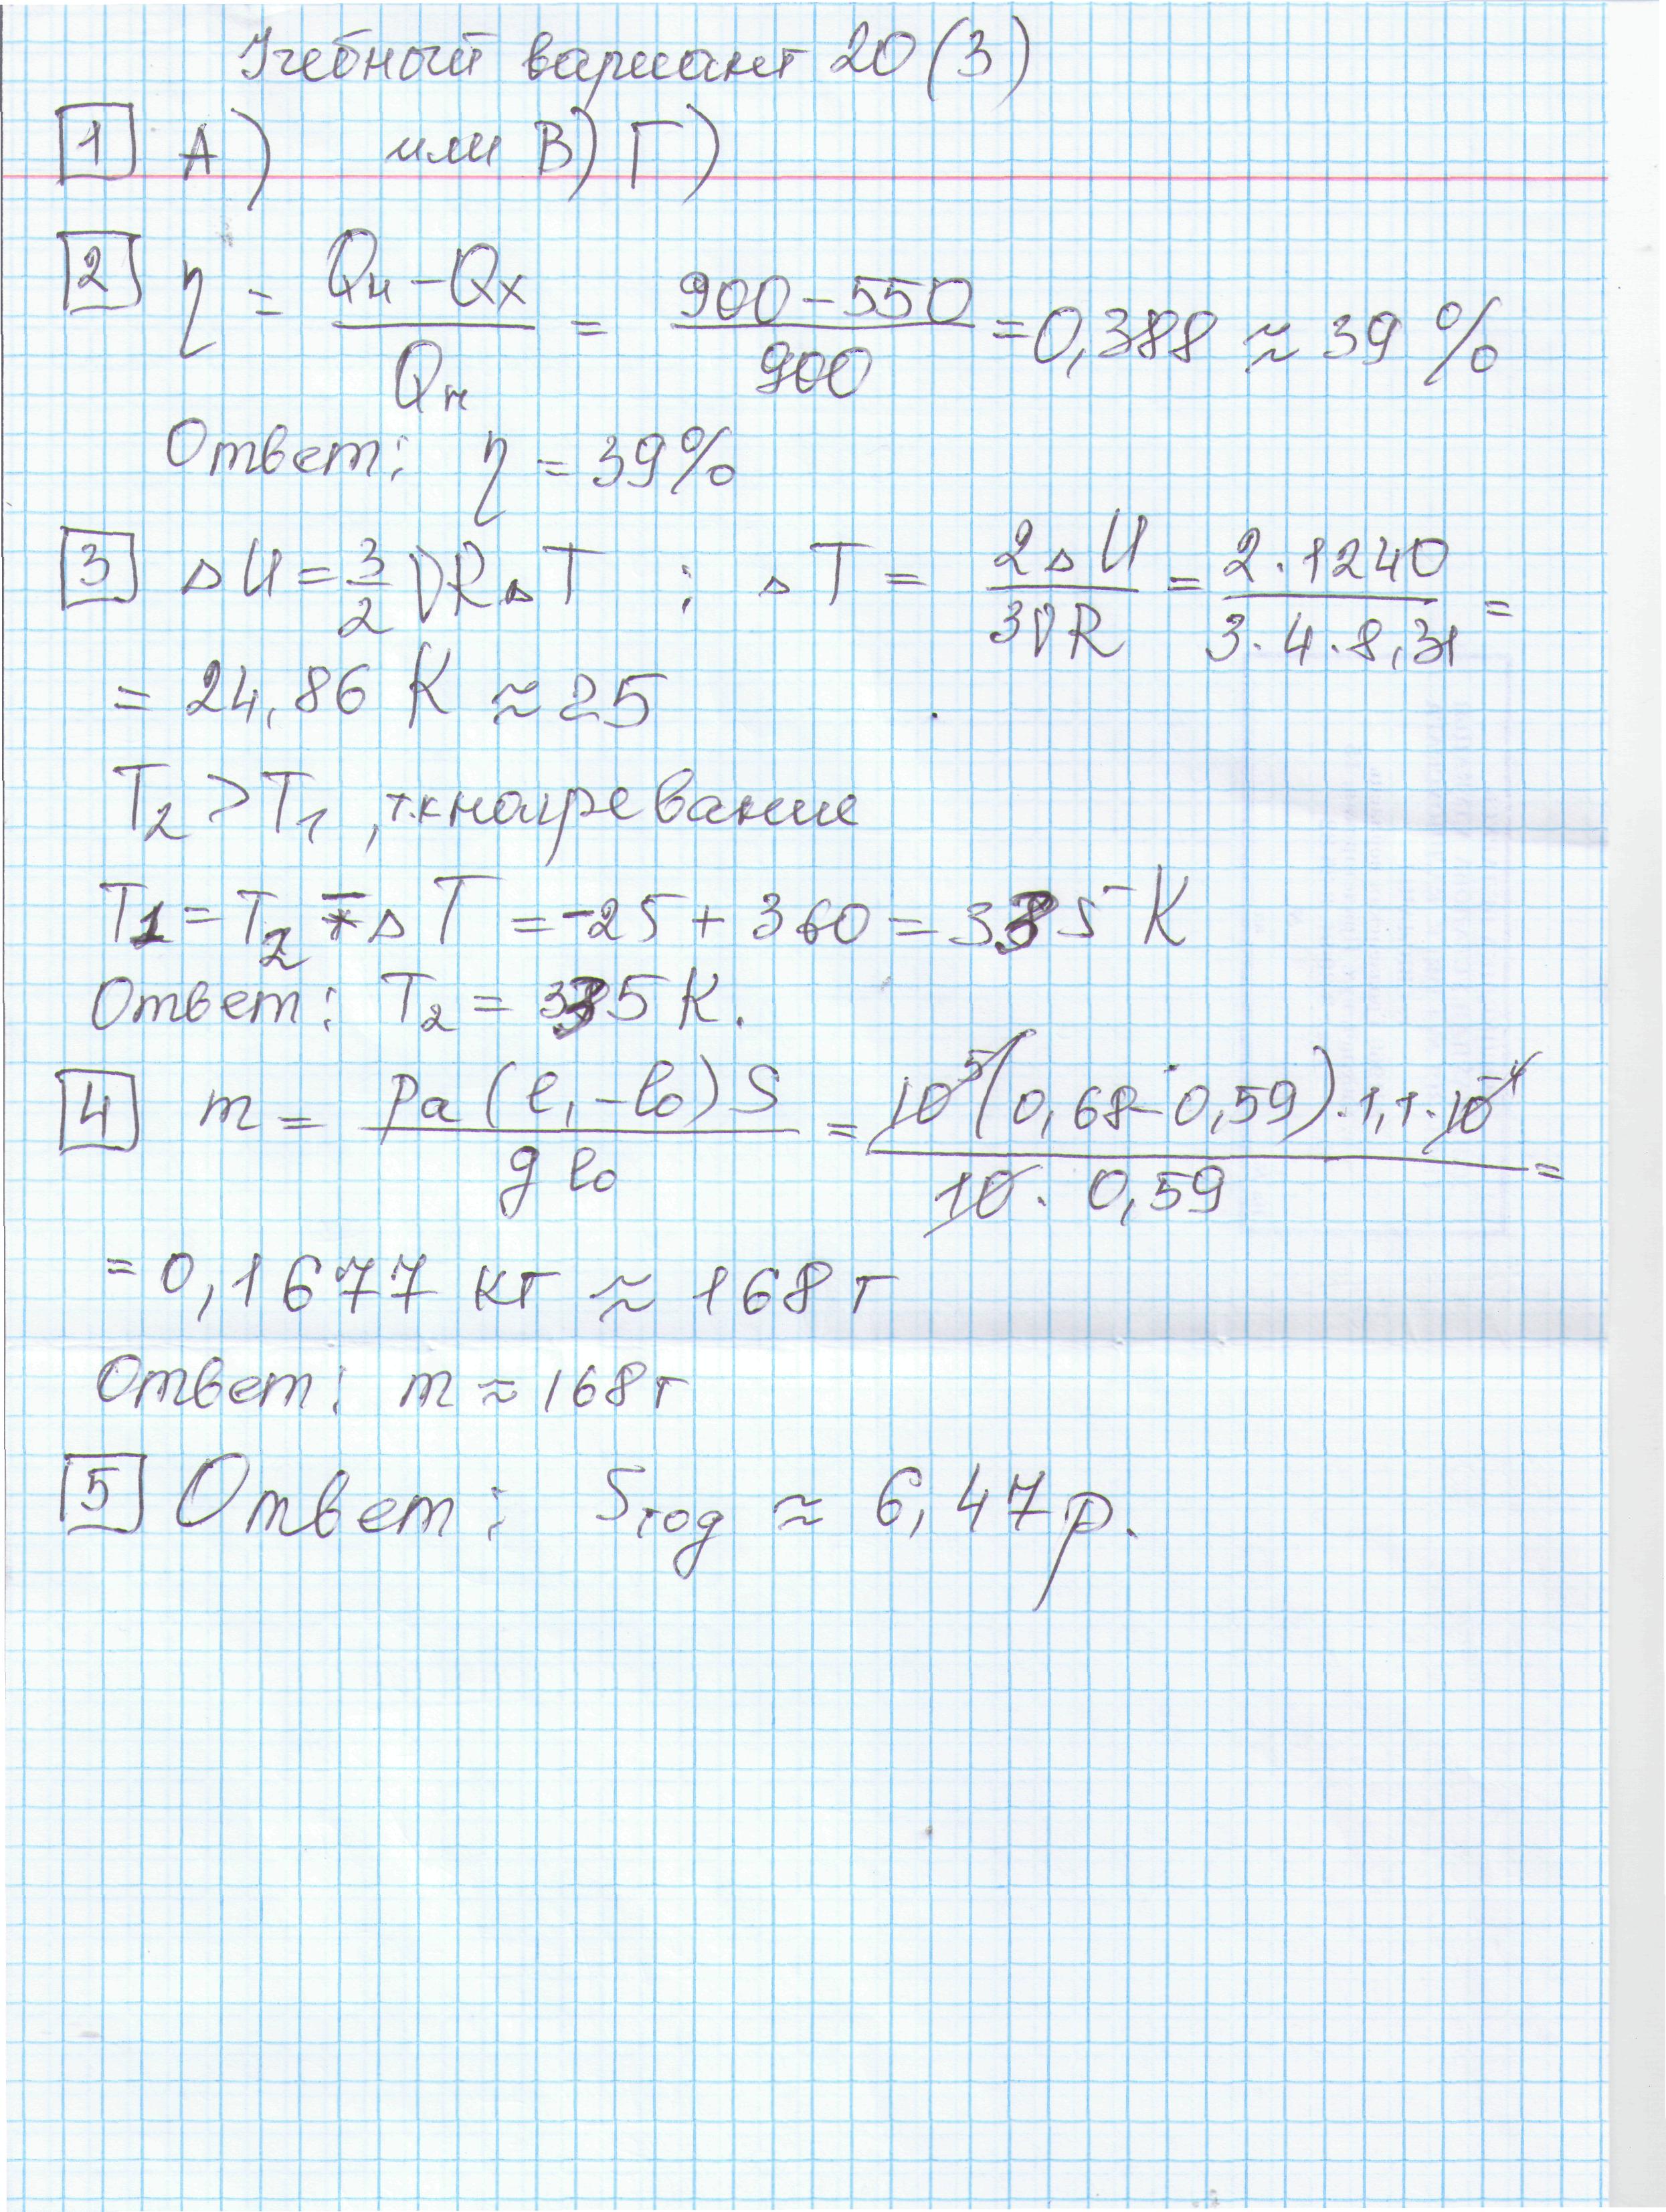 Учебный вариант 20(3)
1 А) или В) Г)
2 η = (Qн – Qx)/Qн = (900 – 550)/900 = 0,388 ≈ 39 %
Ответ: η = 39%
3 ΔU = 3/2 νRΔT ; ΔT = 2ΔU/3νR = 2·1240/3·4·8,31 =
= 24,86 К ≈ 25
T₂ > T₁ , т.к нагревание
T1 = T₂ – ΔT = –25 + 360 = 335 К
Ответ: T₂ = 335 К.
4 m = pa(l₁ – l₀)S/gl₀ = 10⁵(0,68 – 0,59)·1,1·10⁻⁴/10·0,59 =
= 0,1677 кг ≈ 168 г
Ответ: m ≈ 168 г
5 Ответ: Sгод ≈ 6,47 р.